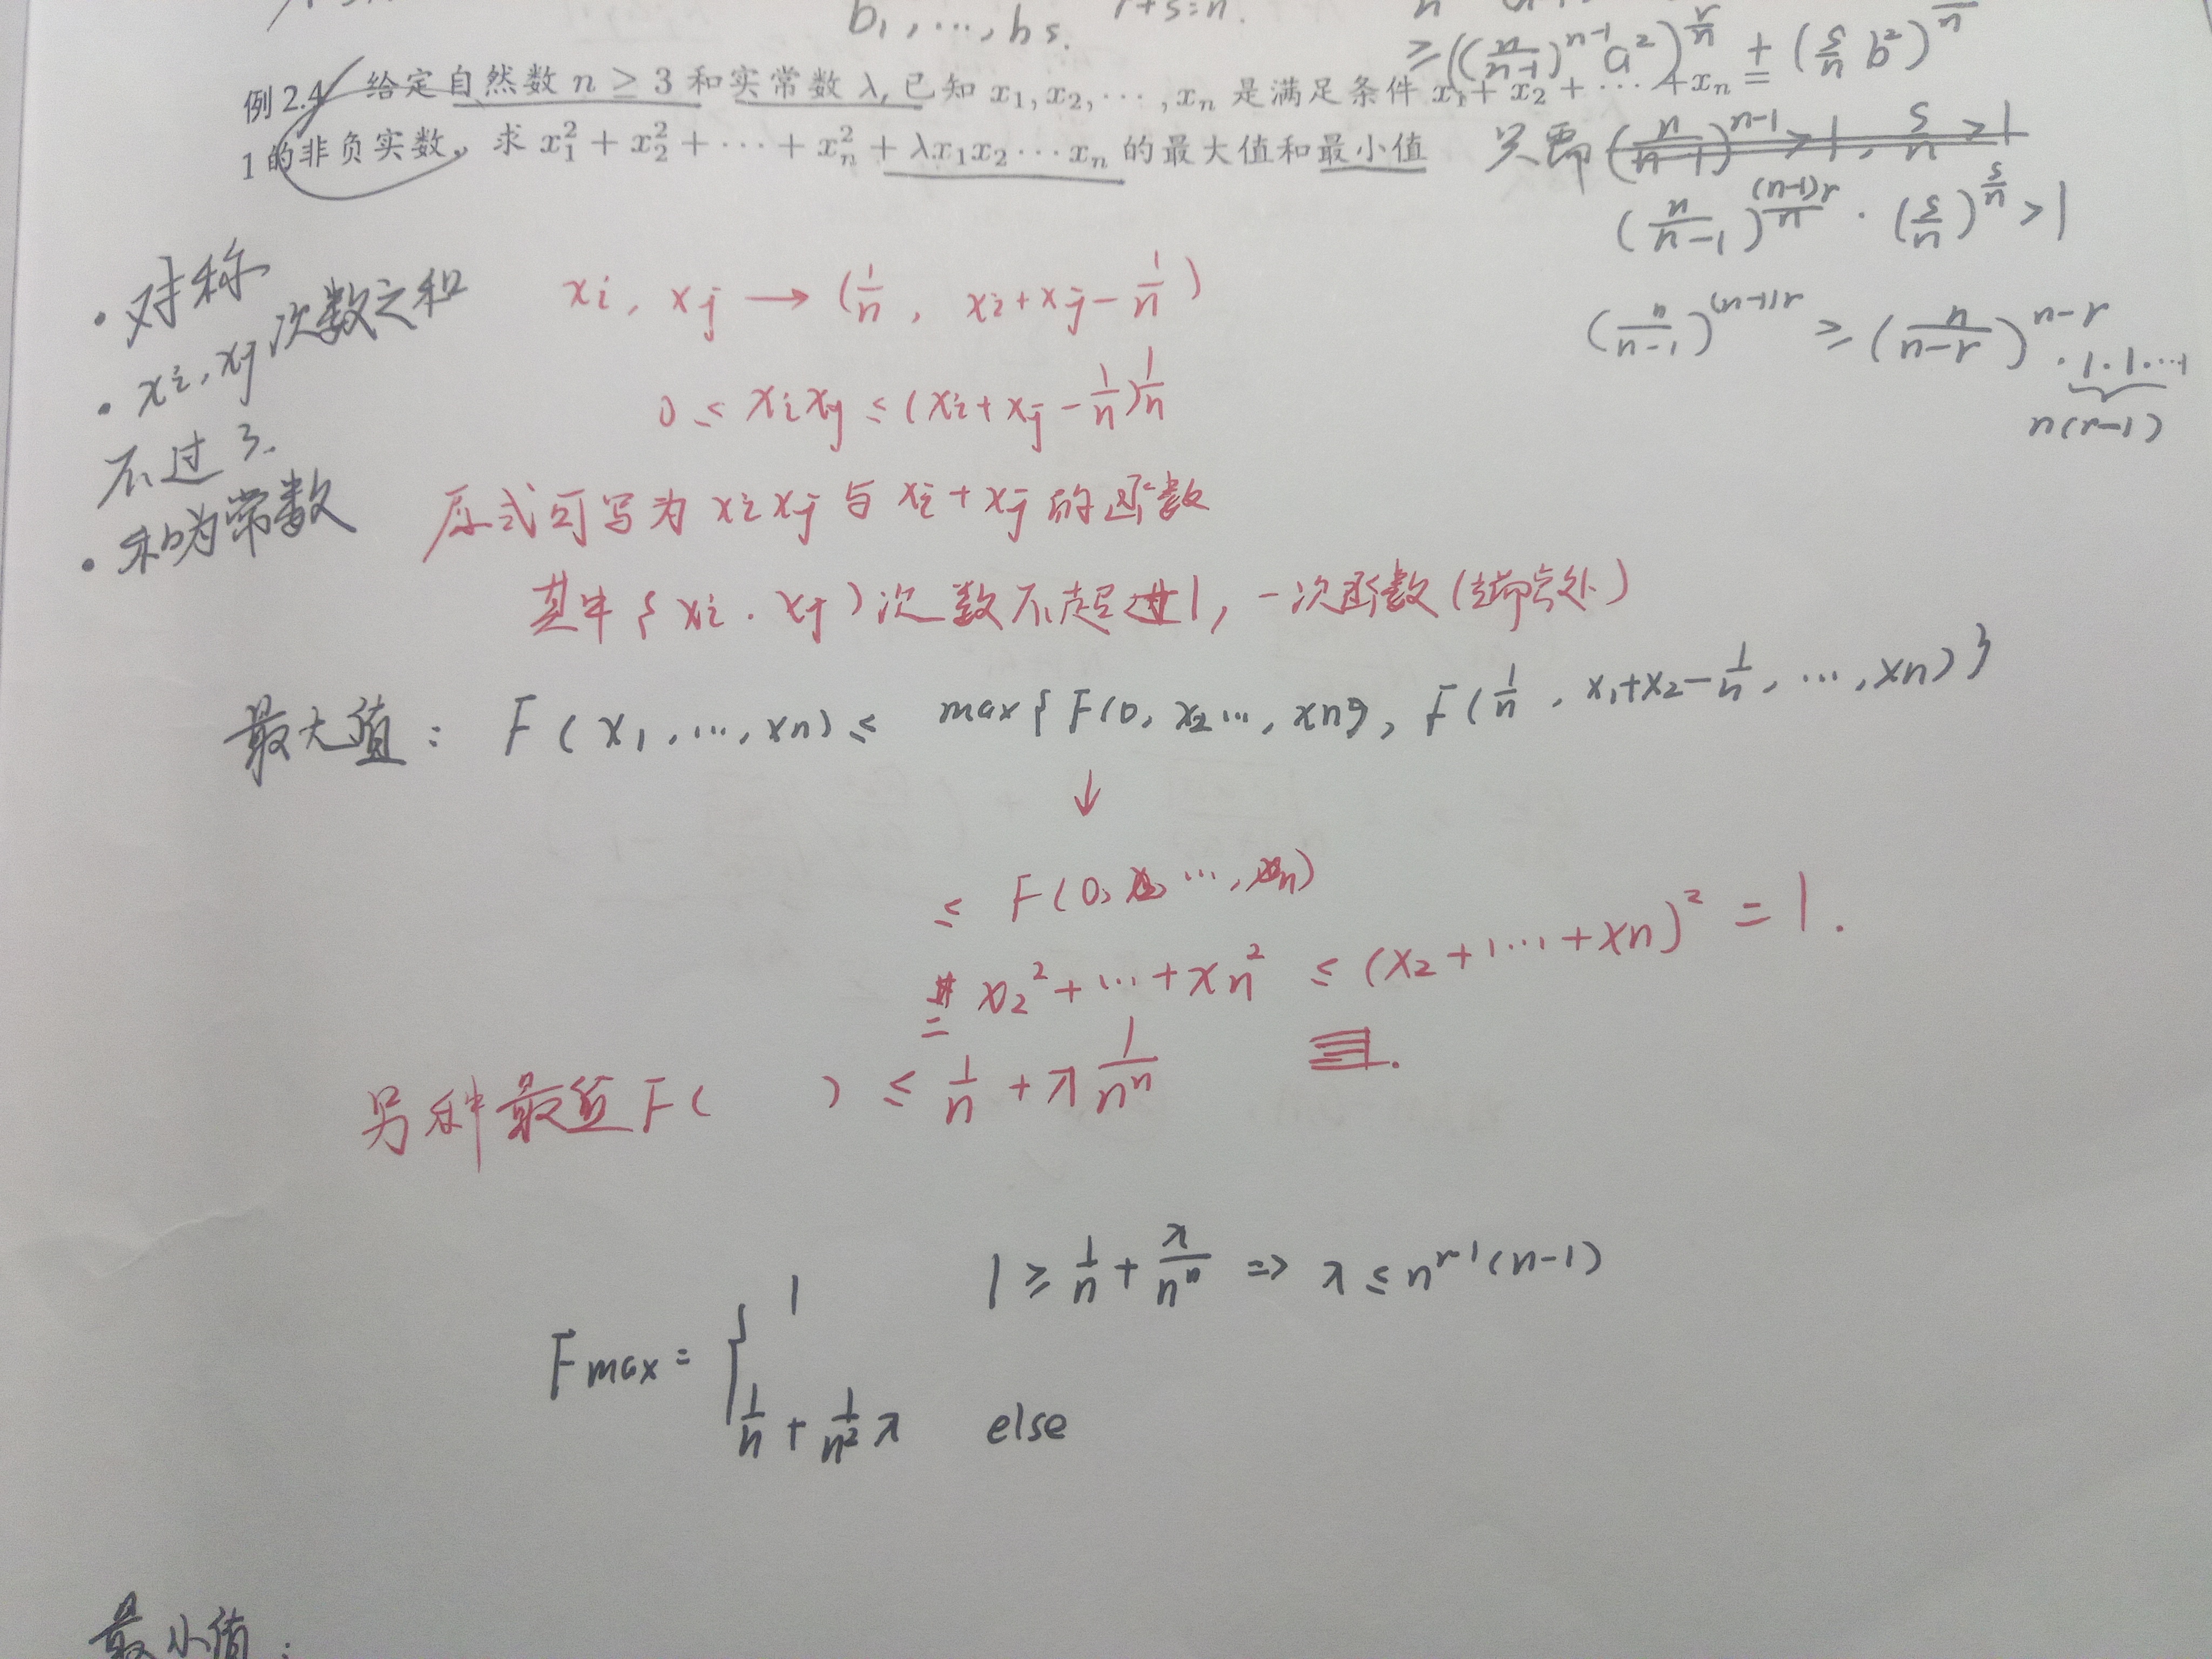 b₁, ⋯, b s. r+s=n.
≥((n/(n-1))^{n-1} a²)^{r/n} + (s/n b²)^{s/n}
例 2.4 给定自然数 n ≥ 3 和实常数 λ, 已知 x₁, x₂, ⋯ , xₙ 是满足条件 x₁ + x₂ + ⋯ + xₙ =
1 的非负实数, 求 x₁² + x₂² + ⋯ + xₙ² + λx₁x₂ ⋯ xₙ 的最大值和最小值
只需 (n/(n-1))^{n-1} > 1, s/n > 1
(n/(n-1))^{(n-1)r/n} · (s/n)^{s/n} > 1
(n/(n-1))^{(n-1)r} ≥ (n/(n-r))^{n-r} · 1·1⋯1
n(r-1)
• 对称
• xi, xj 次数之和
不过 3.
• 和为常数
xi, xj → (1/n, xi+xj-1/n)
0 ≤ xixj ≤ (xi+xj-1/n)1/n
原式可写为 xixj 与 xi+xj 的函数
其中 { xi·xj ) 次数不超过1, 一次函数 (端点处)
最大值: F(x₁, ⋯, xn) ≤ max{ F(0, x₂⋯, xn), F(1/n, x₁+x₂-1/n, ⋯, xn) }
↓
≤ F(0, x₂, ⋯, xn)
= x₂² + ⋯ + xn² ≤ (x₂ + ⋯ + xn)² = 1.
另种最值 F( ) ≤ 1/n + λ 1/nⁿ
Fmax = { 1 1 ≥ 1/n + λ/nⁿ => λ ≤ n^{n-1}(n-1)
1/n + 1/n² λ else
最小值: